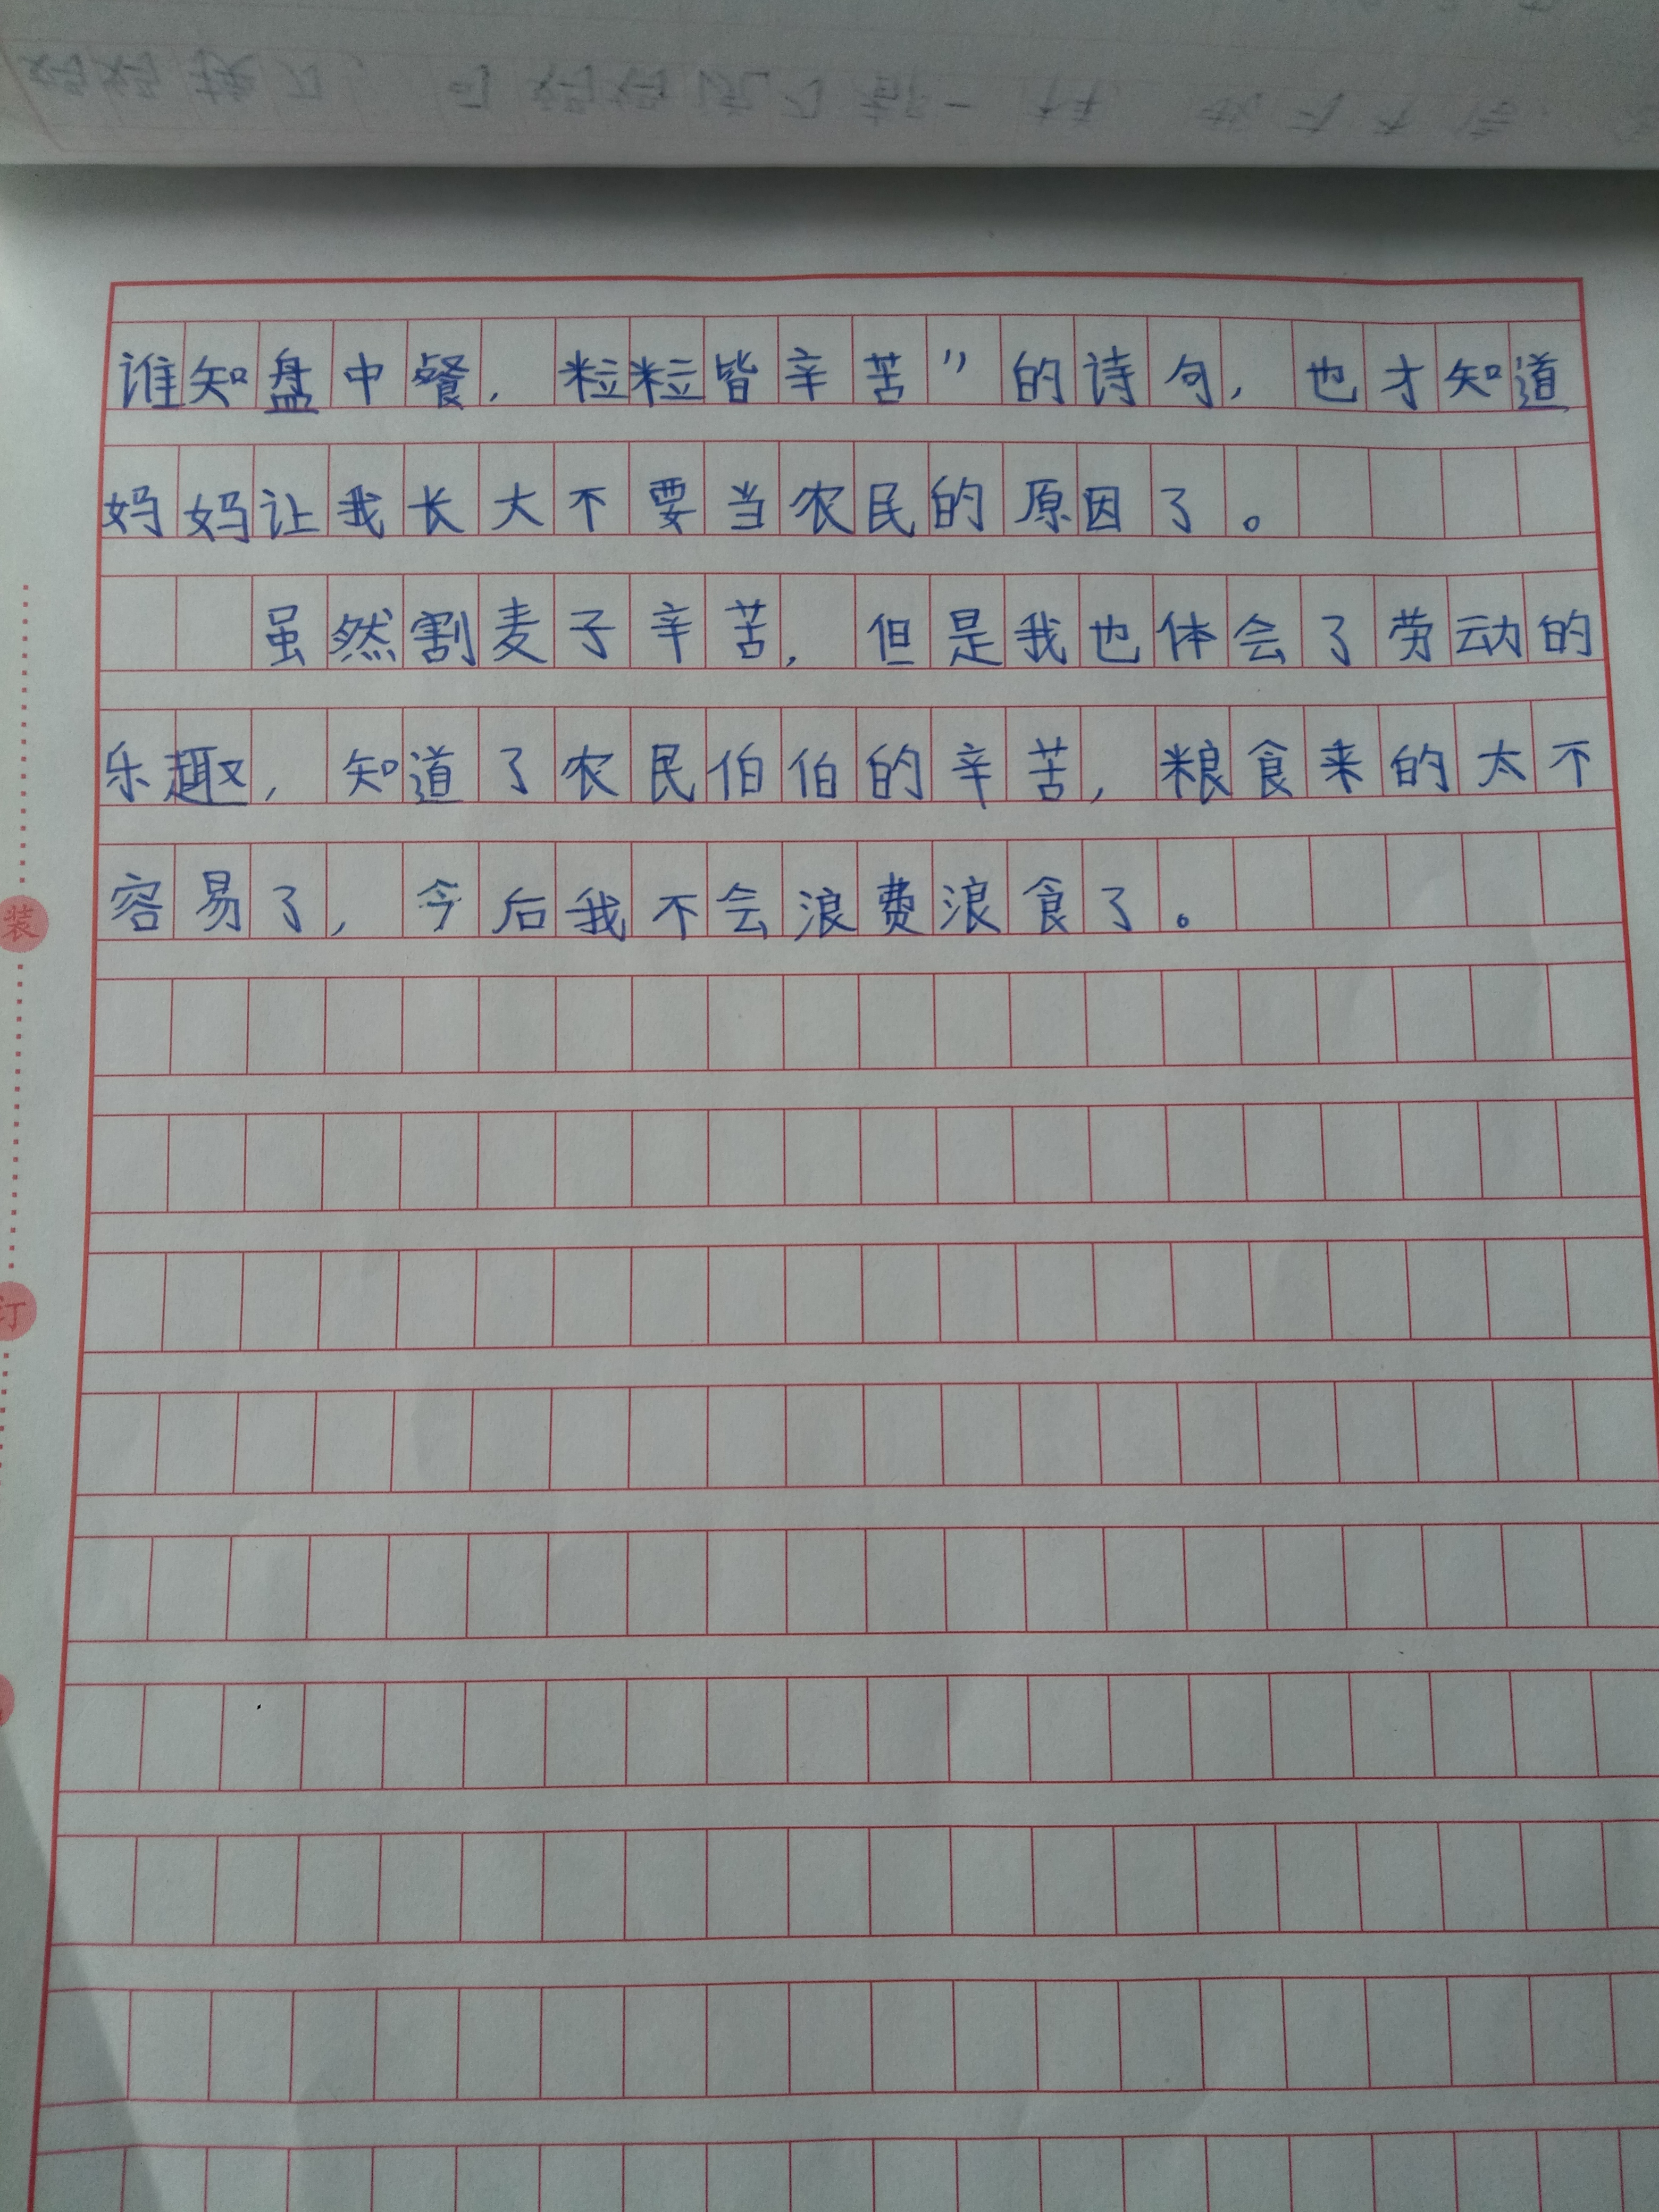 谁知盘中餐，粒粒皆辛苦”的诗句，也才知道
妈妈让我长大不要当农民的原因了。
虽然割麦子辛苦，但是我也体会了劳动的
乐趣，知道了农民伯伯的辛苦，粮食来的太不
容易了，今后我不会浪费浪食了。
装
订